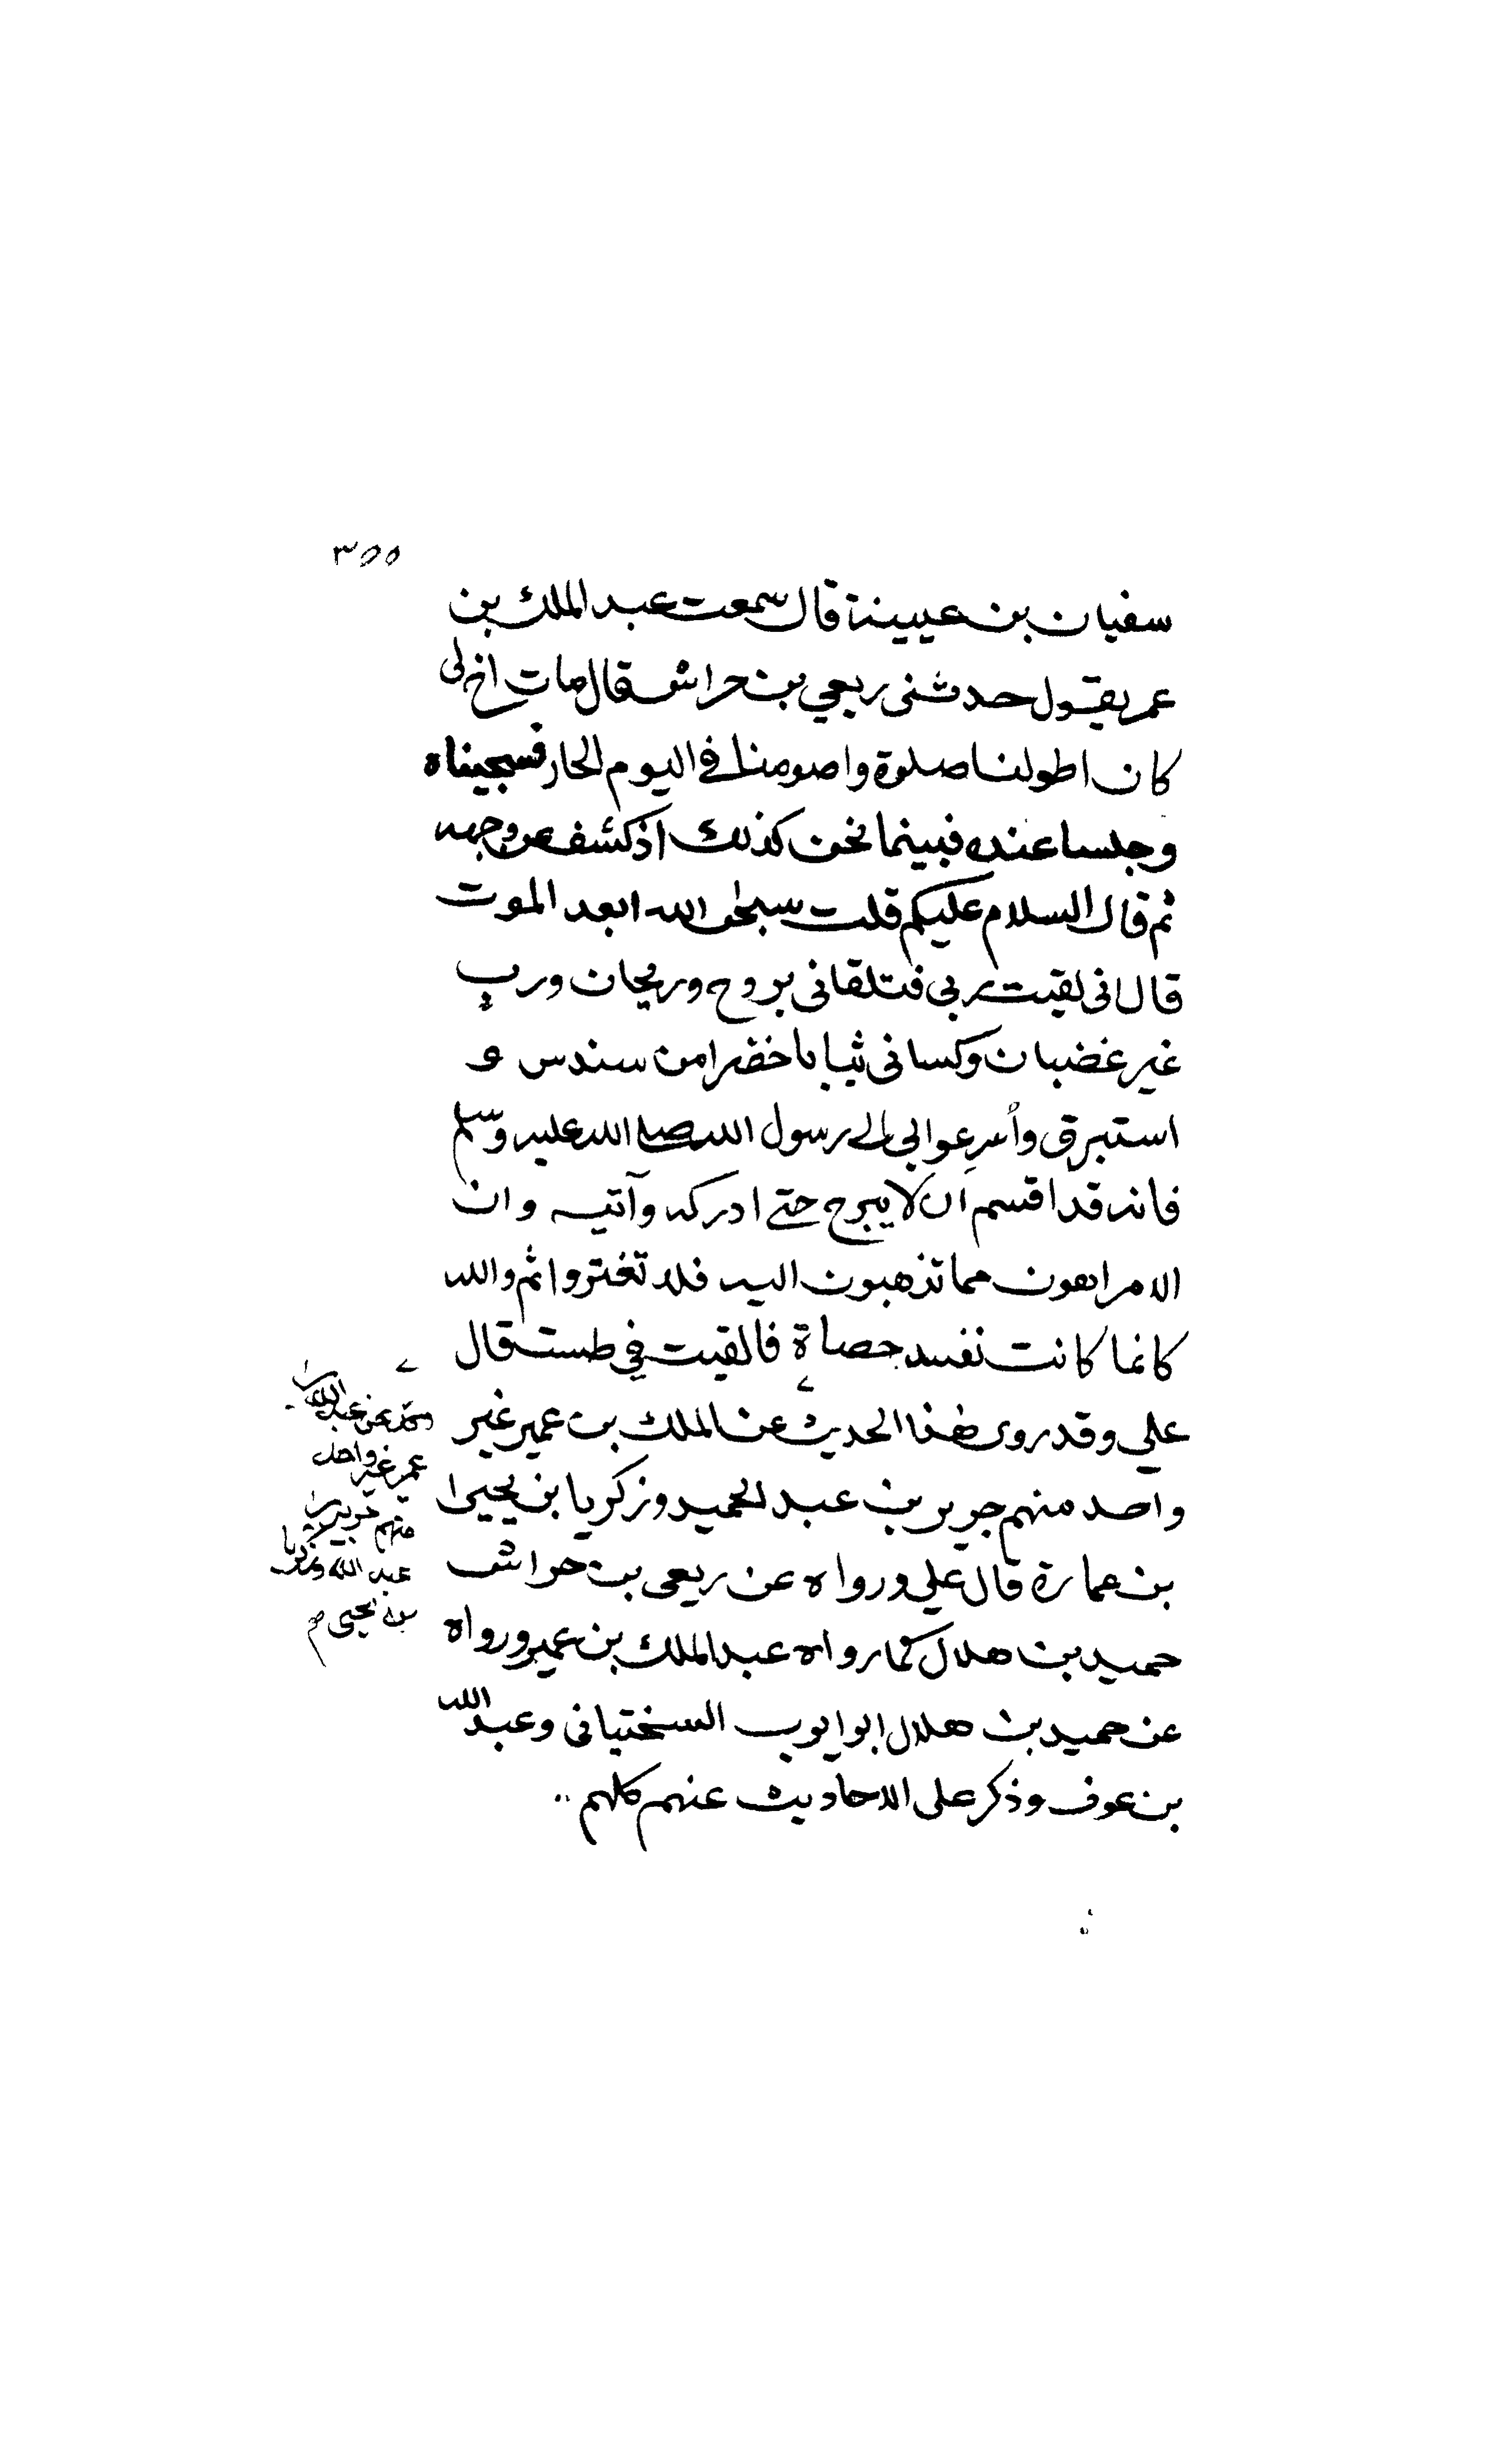 ٣٥٥
سفيان بن عيينة قال سمعت عبد الملك بن
عمر يقول حدثنى ربعي بن حراش قال مات اخ لى
كان اطولنا صلوة واصومنا في اليوم الحار فسجيناه
وجلسنا عنده فبينما نحن كذلك اذ كشف عن وجهه
ثم قال السلام عليكم قلت سبحن الله ابعد الموت
قال انى لقيت ربي فتلقانى بروح وريحان ورب
غير غضبان وكسانى ثيابا خضرا من سندس و
استبرق وأسرعوا بى الى رسول الله صلى الله عليه وسلم
فانه قد اقسم ان لا يبرح حتى ادركه وآتيه وان
الامر اهون مما تذهبون اليه فلا تغتروا ثم والله
كانما كانت نفسه حصاة فالقيت في طست قال
علي وقد روى هذا الحديث عن الملك بن عمير غير
واحد منهم جرير بن عبد الحميد وزكريا بن يحيى ا
بن عمارة قال علي ورواه عن ربعى بن حراش
حميد بن هلال كما رواه عبد الملك بن عمير ورواه
عن حميد بن هلال ابو ايوب السختيانى وعبد الله
بن عوف وذكر على الاحاديث عنهم كلهم
عن عبد الله بن
عمر غير واحد
منهم جرير بن
عبد الله وزكريا
بن يحيى م